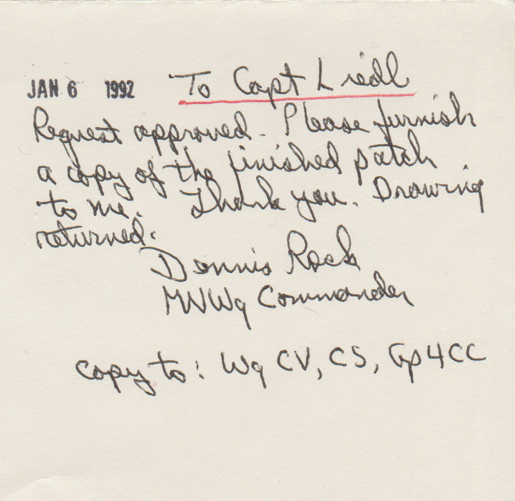 JAN 6 1992 To Capt Liedl
Request approved. Please furnish
a copy of the finished patch
to me. Thank you. Drawing
returned.
Dennis Rock
MNWg Commander
copy to: Wg CV, CS, Gp4CC